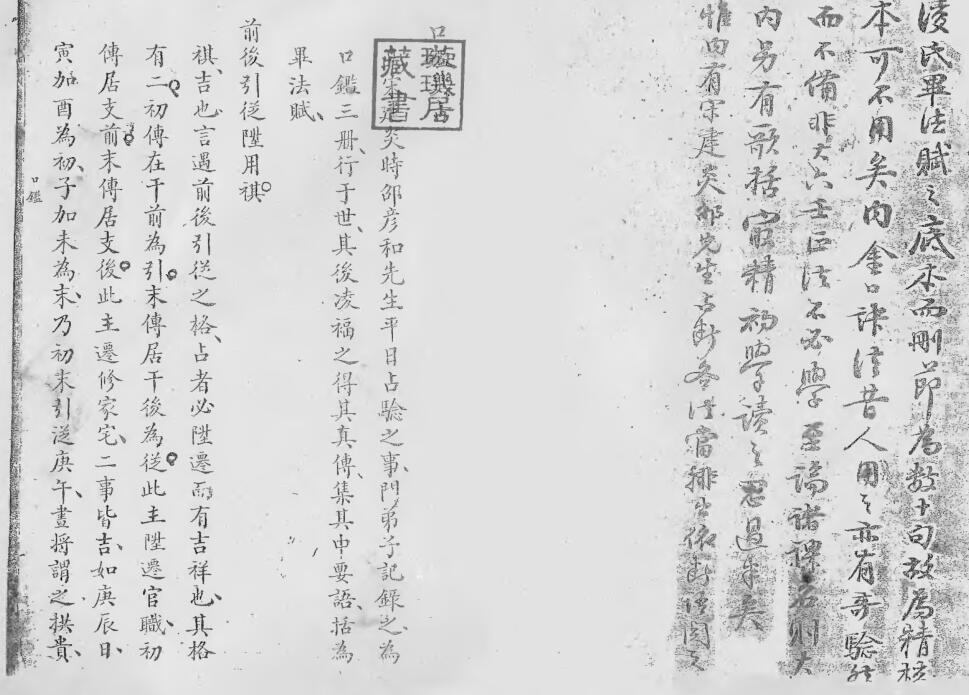 淩氏畢法賦之底本而刪節為數十句故為精
本可不用矣內金口訣法昔人用之亦有奇驗
而不備非大六壬正法不必學至論諸課名則大
內另有歌括最精初學讀之思過半矣
惟內有宋建炎邵先生占斷各法當排出依斷法閱之
口
璇璣居
藏書
宋建炎時邵彥和先生平日占驗之事門弟子記錄之為
口鑑三册行于世其後凌福之得其真傳集其中要語括為
畢法賦
前後引從陞用祺
祺吉也言遇前後引從之格占者必陞遷而有吉祥也其格
有二初傳在干前為引末傳居干後為從此主陞遷官職初
傳居支前末傳居支後此主遷修家宅二事皆吉如庚辰日
寅加酉為初子加未為末乃初末引從庚午晝將謂之拱貴
口鑑